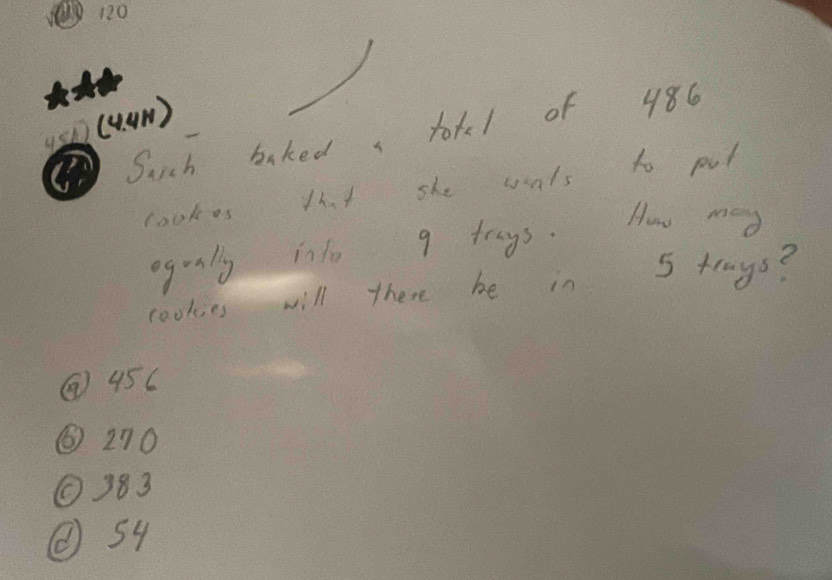 120
(4.4H)
Sarah baked a total of 486
cookies that she wants to put
equally into 9 trays. How many
cookies will there be in 5 trays?
ⓐ 456
ⓑ 270
ⓒ 383
ⓓ 54